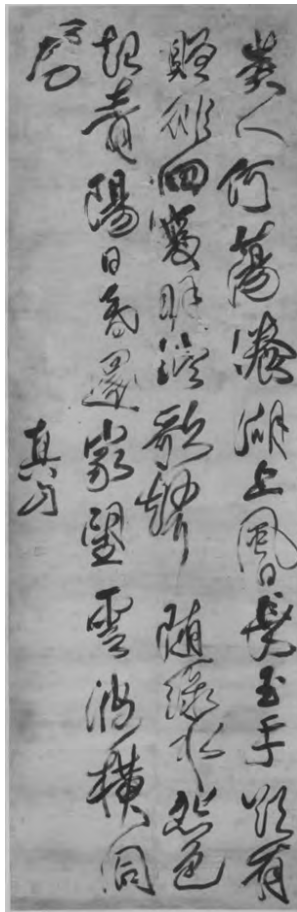 美人何蕩漾湖上風日長玉手欲有
贈徘徊雙明璫歌聲隨綠水怨色
起青陽日暮還家望雲波橫洞
房
真可